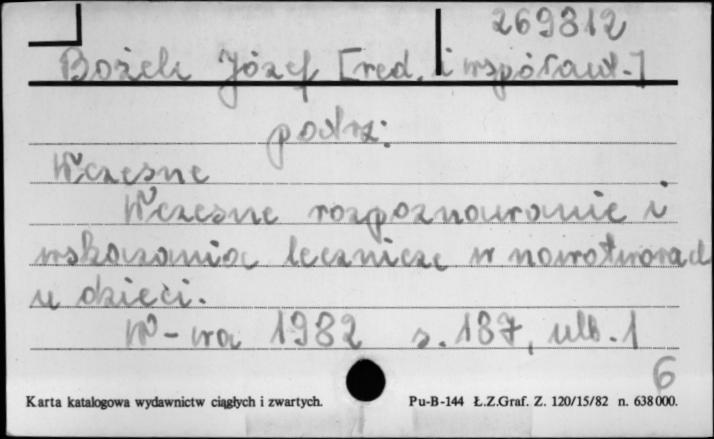 269812
Bożek Józef [red. i współaut.]
patrz:
Wczesne
Wczesne rozpoznawanie i
wskazania lecznicze w nowotworach
u dzieci.
W-wa 1982 s. 187, ulb. 1
6
Karta katalogowa wydawnictw ciągłych i zwartych. Pu-B-144 Ł.Z.Graf. Z. 120/15/82 n. 638 000.